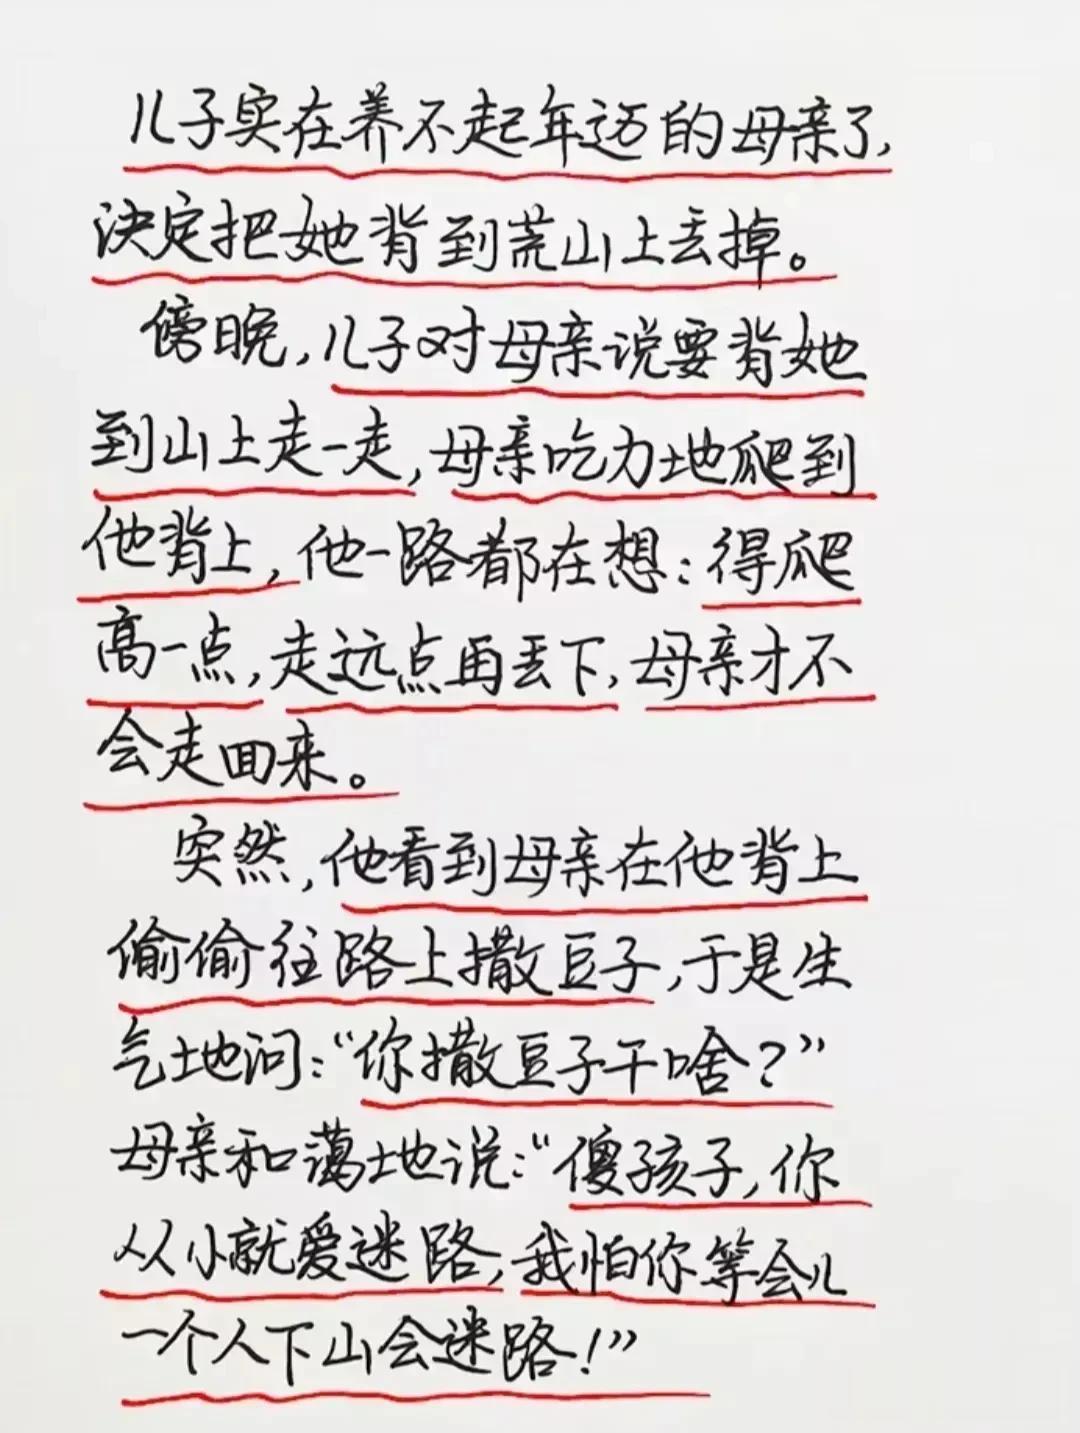 儿子实在养不起年迈的母亲了,
决定把她背到荒山上丢掉。
傍晚,儿子对母亲说要背她
到山上走一走,母亲吃力地爬到
他背上,他一路都在想:得爬
高一点,走远点再丢下,母亲才不
会走回来。
突然,他看到母亲在他背上
偷偷往路上撒豆子,于是生
气地问:“你撒豆子干啥?”
母亲和蔼地说:“傻孩子,你
从小就爱迷路,我怕你等会儿
一个人下山会迷路!”